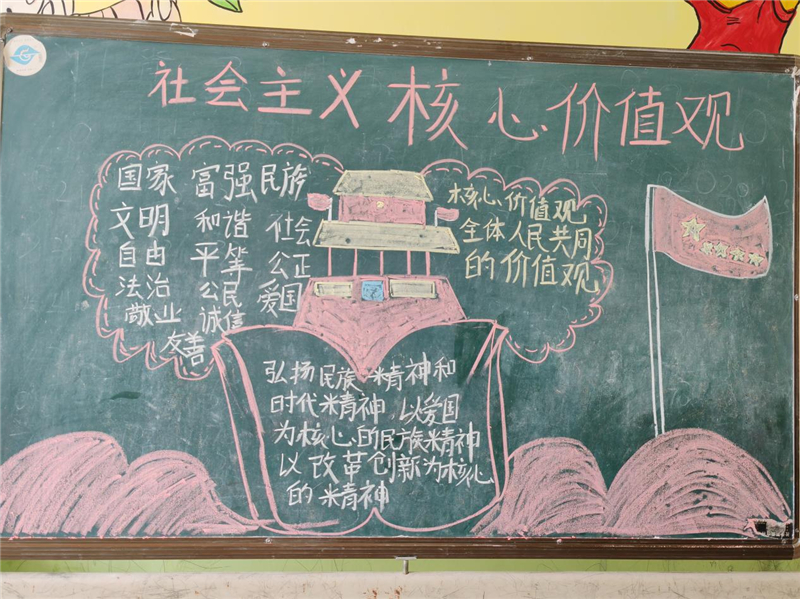 社会主义核心价值观
国家 富强 民族
文明 和谐 社会
自由 平等 公正
法治 公民 爱国
敬业 诚信
友善
核心价值观
全体人民共同
的价值观
弘扬民族精神和
时代精神,以爱国
为核心的民族精神
以改革创新为核心
的精神